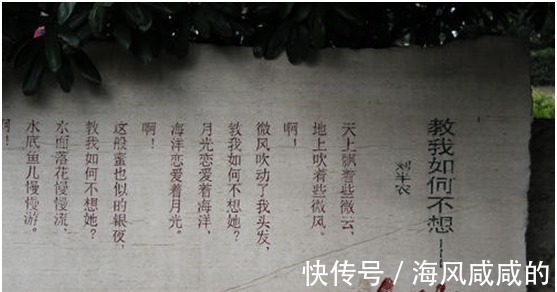 教我如何不想——
刘半农
天上飘着些微云，
地上吹着些微风。
啊！
微风吹动了我头发，
教我如何不想她？
月光恋爱着海洋，
海洋恋爱着月光。
啊！
这般蜜也似的银夜，
教我如何不想她？
水面落花慢慢流，
水底鱼儿慢慢游。
啊！
快传号 / 海风咸咸的